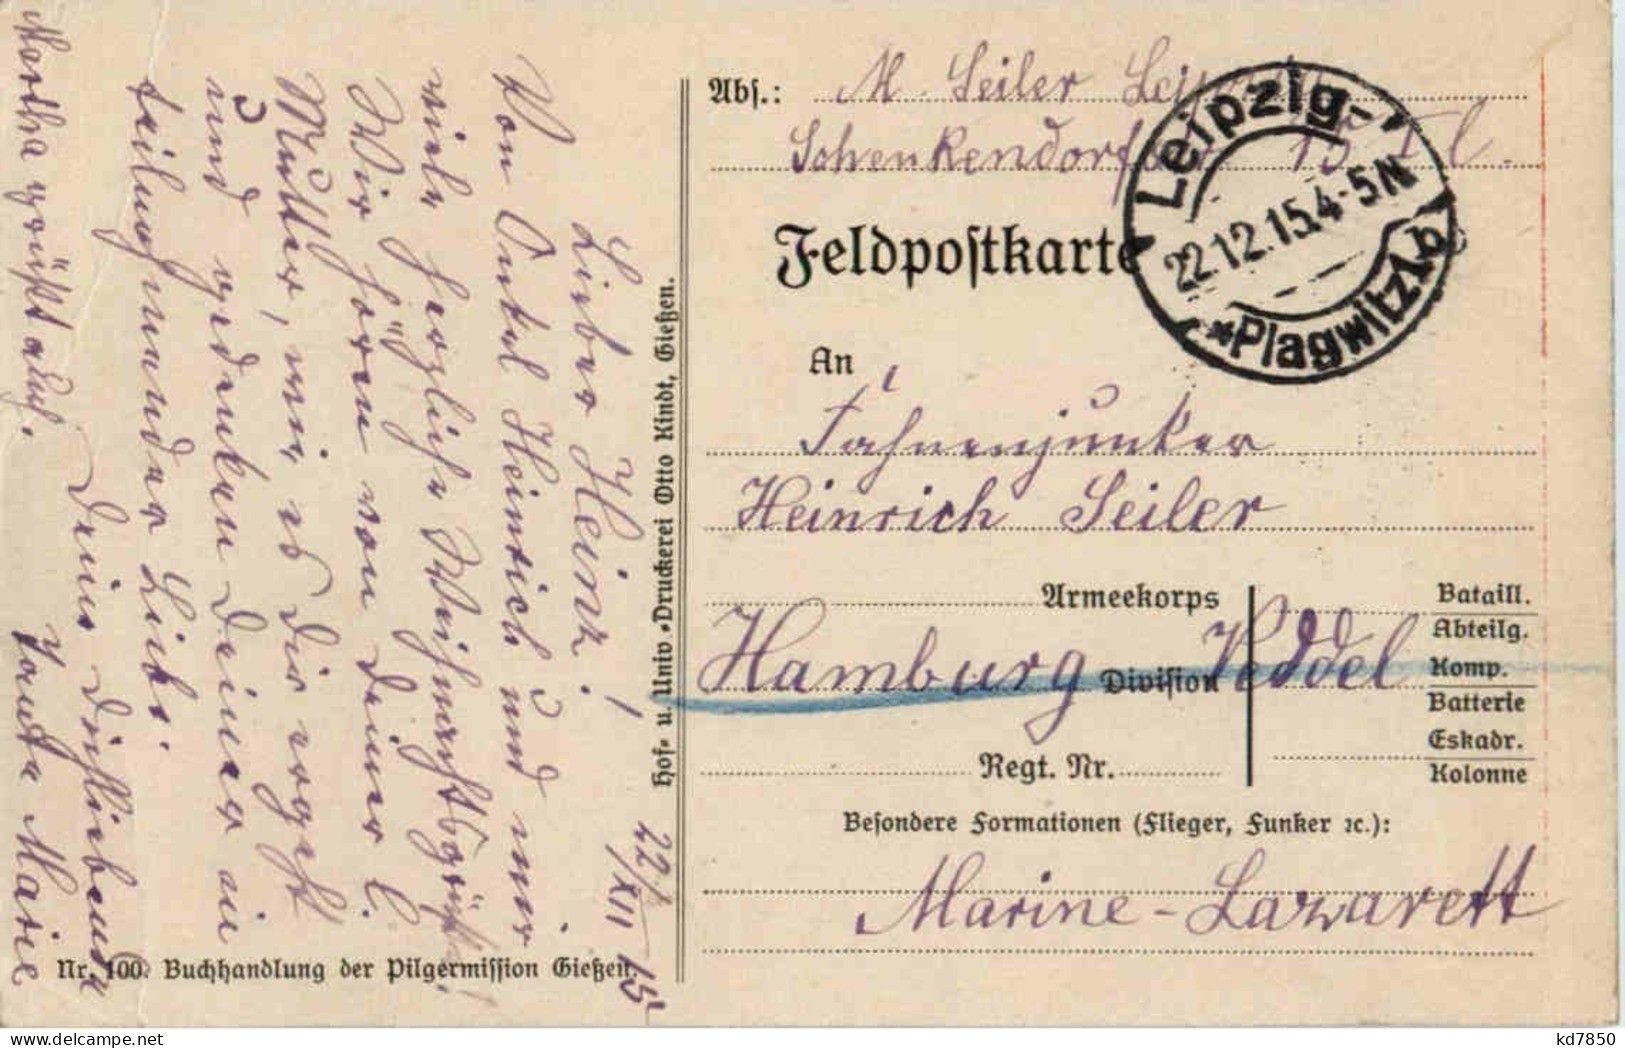 Abs.: M. Seiler Leipzig
Schenkendorfstr 15 II l.
Feldpostkarte
Leipzig-
22.12.15.4-5N
*Plagwitz 1b
An
Fahnenjunker
Heinrich Seiler
Armeekorps
Bataill.
Abteilg.
Hamburg Division Veddel Komp.
Batterie
Eskadr.
Regt. Nr.
Kolonne
Besondere Formationen (Flieger, Funker ꝛc.):
Marine-Lazarett
Hof- u. Univ.-Druckerei Otto Kindt, Gießen.
22/XII 15
Lieber Heinz!
Von Onkel Heinrich und mir
viele herzliche Weihnachtsgrüße!
Wir hören von Deiner l.
Mutter, wie es Dir ergeht
und gedenken Deiner in
teilnehmender Liebe.
Deine Dichliebende
Tante Marie
Martha grüßt auch.
Nr. 100. Buchhandlung der Pilgermission Gießen.
kd7850